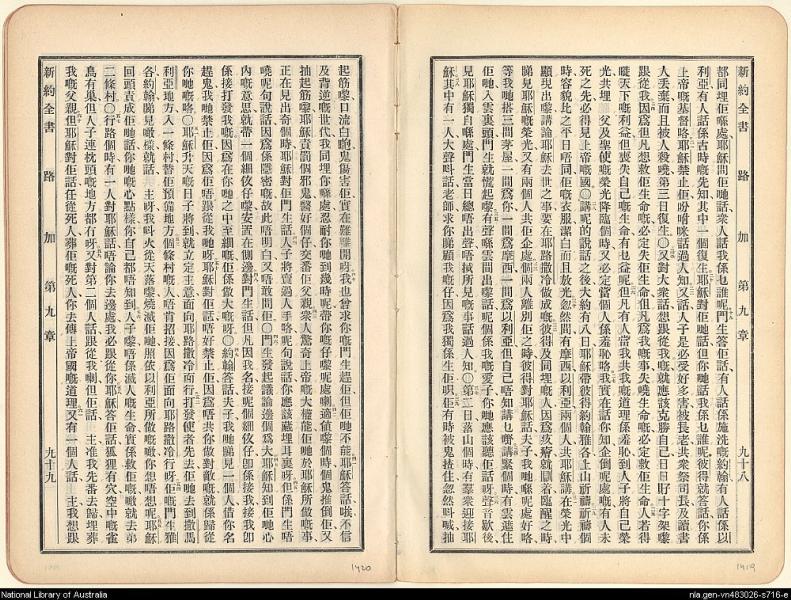 新約全書 路加 第九章 九十八
都同埋佢喺處耶穌問佢哋話衆人話我係乜誰呢門生答佢話有人話係施洗嘅約翰有人話係以
利亞有人話係古時嘅先知其中一個復生耶穌對佢哋話但你哋話我係乜誰呢彼得就答話你係
上帝嘅基督咯耶穌禁止佢吩咐咪話過人知又話人子是必受好多害被長老共衆祭司長及讀書
人丟棄而且被人殺嘵第三日復生○又對大衆話想跟從我嘅就應該克勝自己日日孭十字架嚟
跟從我因爲但凡想救佢生命嘅必定失佢生命但凡爲我嘅事失嘵生命嘅必定救佢生命人若得
嘵天下嘅利益但喪失自己嘅生命有乜益呢但凡有人當我共我嘅道理係羞恥到人子將自己榮
光共埋 父及聖使嘅榮光降臨個時又必定當個人係羞恥咯我實在話你知企倒呢處嘅有人未
死之先必得見上帝嘅國○講呢的說話之後大約有八日耶穌帶彼得約翰雅各上山祈禱祈禱個
時容貌比之平日唔同佢嘅衣服潔白而且放光忽然間有摩西以利亞兩個人共耶穌講在榮光中
顯現出嚟講論耶穌去世之事要在耶路撒冷做成嘅彼得及同埋嘅人因爲疚瘡就瞓着臨醒之時
睇見耶穌嘅榮光又有兩個人共佢企處個兩人離別佢之時彼得對耶穌話夫子我哋喺呢處好咯
等我哋搭三間茅屋一間爲你一間爲摩西一間爲以利亞但自己唔知講乜嘢講緊個時有雲遮住
佢哋入雲裏頭門生就慌起嚟有聲喺雲間出嚟話呢個係我嘅愛子你哋應該聽佢話呀聲音歇後
見耶穌獨自喺處門生當日總唔出聲唔摵所見嘅事話過人知○第二日落山個時有羣衆迎接耶
穌其中有一人大聲呌話老師求你睇顧我嘅仔因爲我獨係生佢啫佢有時被鬼揸住忽然呌喊抽
起筋嚟口流白鮑鬼傷害佢實在難離開呀我也曾求你嘅門生趕佢但佢哋不能耶穌答話哎不信
及背逆嘅世代我同埋你喺處忍耐你哋到幾時呢帶你嘅仔嚟呢處喇適値嚟個時個鬼推倒佢又
抽起筋嚟耶穌責罰個邪鬼醫好個仔交番佢父親衆人驚奇上帝嘅大權能佢哋於耶穌所做嘅事
正在見出奇個時耶穌對佢門生話人子將賣過人手咯呢句說話你應該藏埋耳裏呀但係門生唔
曉呢句說話因爲係隱密嘅故此唔明白又唔敢問佢○門生發起議論邊個爲大耶穌知到佢哋心
內嘅意思就帶一個細佟仔嚟安置在側邊對門生話但凡因我名接呢個細佟仔卽係接我接我卽
係接打發我嘅因爲在你哋之中至細嘅佢係做大嘅呀○約翰答話夫子我哋睇見一個人借你名
趕鬼我哋禁止佢因爲佢唔跟從我哋呀耶穌對佢話唔好禁止佢因爲唔共你做對敵嘅就係歸從
你哋嘅咯○耶穌升天嘅日子將到就立定主意面向耶路撒冷而行打發使者先去佢哋去到撒馬
利亞地方入一條村替佢預備地方個條村嘅人唔肯招接因爲佢面向耶路撒冷行呀佢嘅門生雅
各約翰睇見噉樣就話 主呀我呌火從天落嚟燒滅佢哋照依以利亞所做嘅噉你想唔想呢耶穌
回頭責成佢哋話你哋嘅心點樣你自己都唔知到人子嚟唔係滅人嘅生命實係救佢嘅噉就去第
二條村○行路個時有一人對耶穌話唔論你去邊處我必跟從你耶穌答佢話狐狸有穴空中嘅雀
鳥有巢但人子連枕頭嘅地方都冇呀又對第二個人話跟從我喇但佢話 主准我先番去歸埋葬
我嘅父親但耶穌對佢話任從死人葬佢嘅死人你去傳上帝國嘅道理又有一個人話 主我想跟
新約全書 路加 第九章 九十九
1419
1420
National Library of Australia
nla.gen-vn483026-s716-e